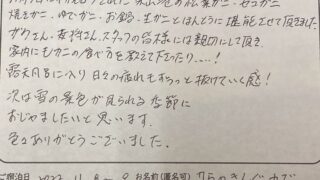 松葉ガニ・セコガニ
焼きガニ・ゆでガニ・お鍋・生ガニとほんとうに堪能させて頂きました。
女将さん、スタッフの皆様には親切にして頂き、
家内にもカニの食べ方を教えて下さったり…!
露天風呂に入り日々の疲れもすーっと抜けていく感!
次は雪の景色が見られる季節に
おじゃましたいと思います。
色々ありがとうございました。
ご宿泊日 お名前(匿名可)